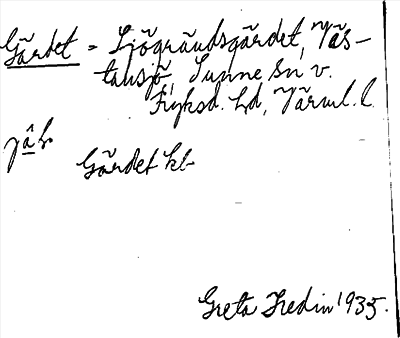 Gärdet = Sjögrändsgärdet, Väs-
tansjö, Sunne sn, v.
Fryksd. hd, Värml. l.
Gärdet kl
Greta Hedin 1935.